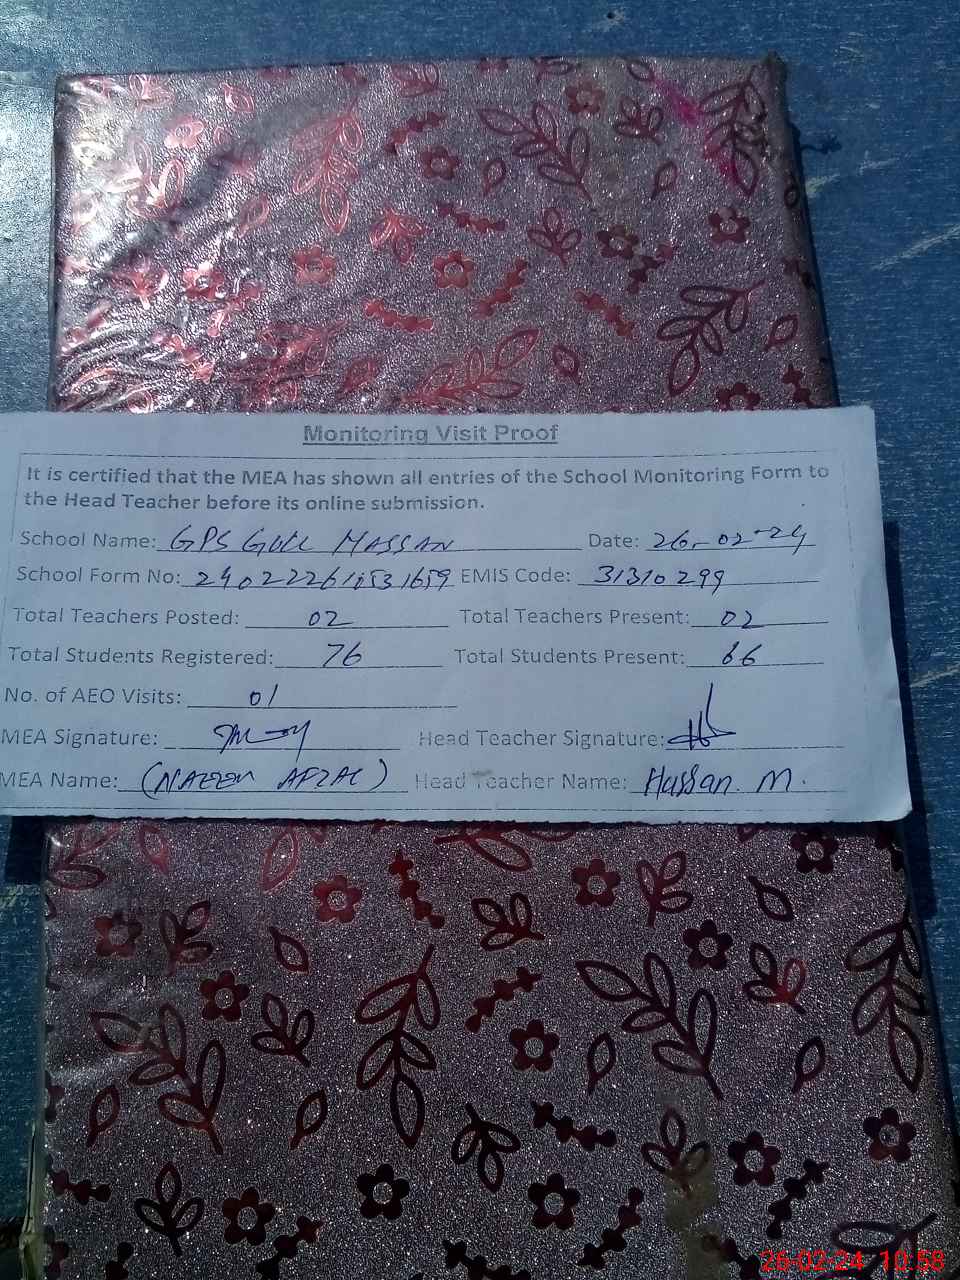 Monitoring Visit Proof
It is certified that the MEA has shown all entries of the School Monitoring Form to
the Head Teacher before its online submission.
School Name: GPS GULL HASSAN Date: 26-02-24
School Form No: EMIS Code: 31310299
Total Teachers Posted: 02 Total Teachers Present: 02
Total Students Registered: 76 Total Students Present: 66
No. of AEO Visits: 01
MEA Signature: Head Teacher Signature:
MEA Name: (NAEEM AFZAL) Head Teacher Name: Hassan. M.
26-02-24 10:58